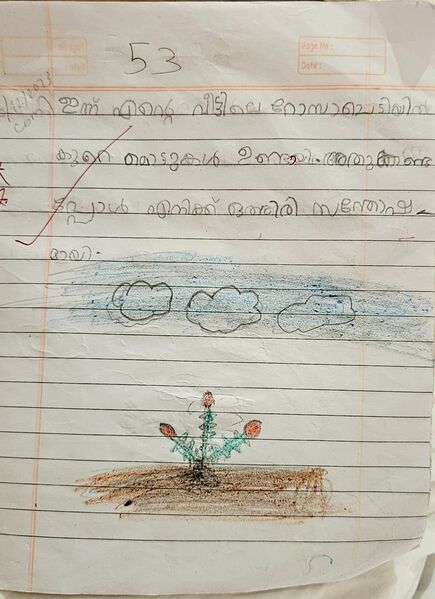 53
Page No :
Date :
ഇന്ന് എന്റെ വീട്ടിലെ റോസാചെടിയിൽ
കുറെ മൊട്ടുകൾ ഉണ്ടായി. അതുകണ്ട
പ്പോൾ എനിക്ക് ഒത്തിരി സന്തോഷ
മായി.